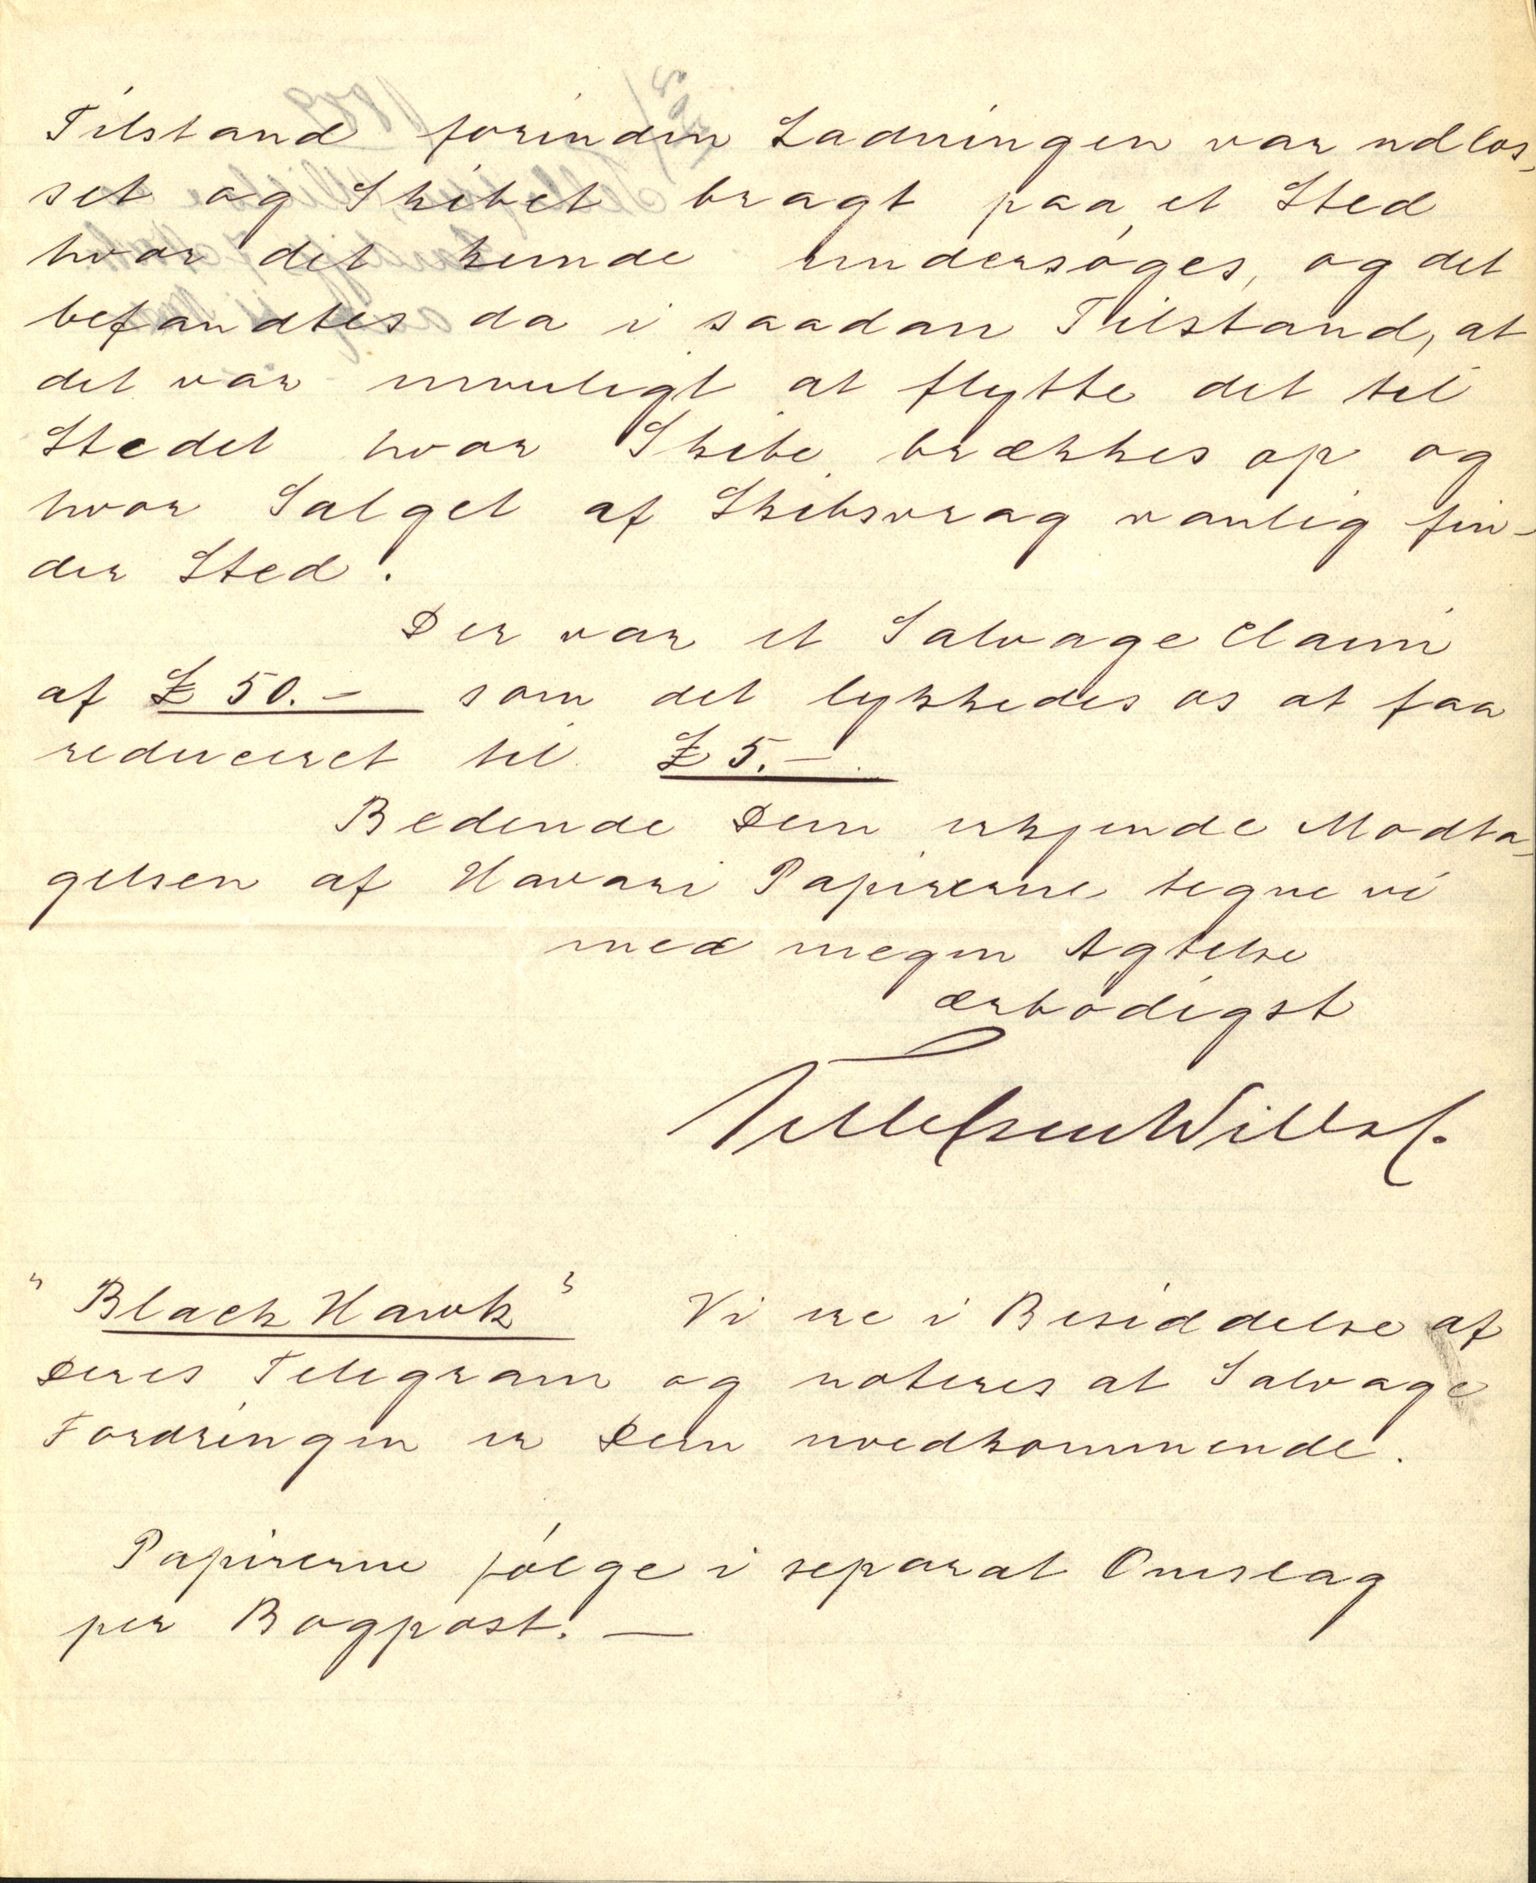 Tilstand forinden Ladningen var udlos-
set og Skibet bragt paa et Sted
hvor det kunde undersøges, og det
befandtes da i saadan Tilstand, at
det var umuligt at flytte det til
Stedet hvor Skibe brækkes op og
hvor Salget af Skibsvrag vanlig fin-
der Sted.
Der var et Salvage Claim
af £ 50.- som det lykkedes os at faa
reduceret til £ 5.-
Bedende Dem erkjende Modta-
gelsen af Havari Papirerne tegne vi
med megen Agtelse
ærbødigst
Tellefsen Wills
"Black Hawk" Vi ere i Besiddelse af
Deres Telegram og noteres at Salvage
Fordringen er Dem uvedkommende.
Papirerne følge i separat Omslag
per Bogpost. —